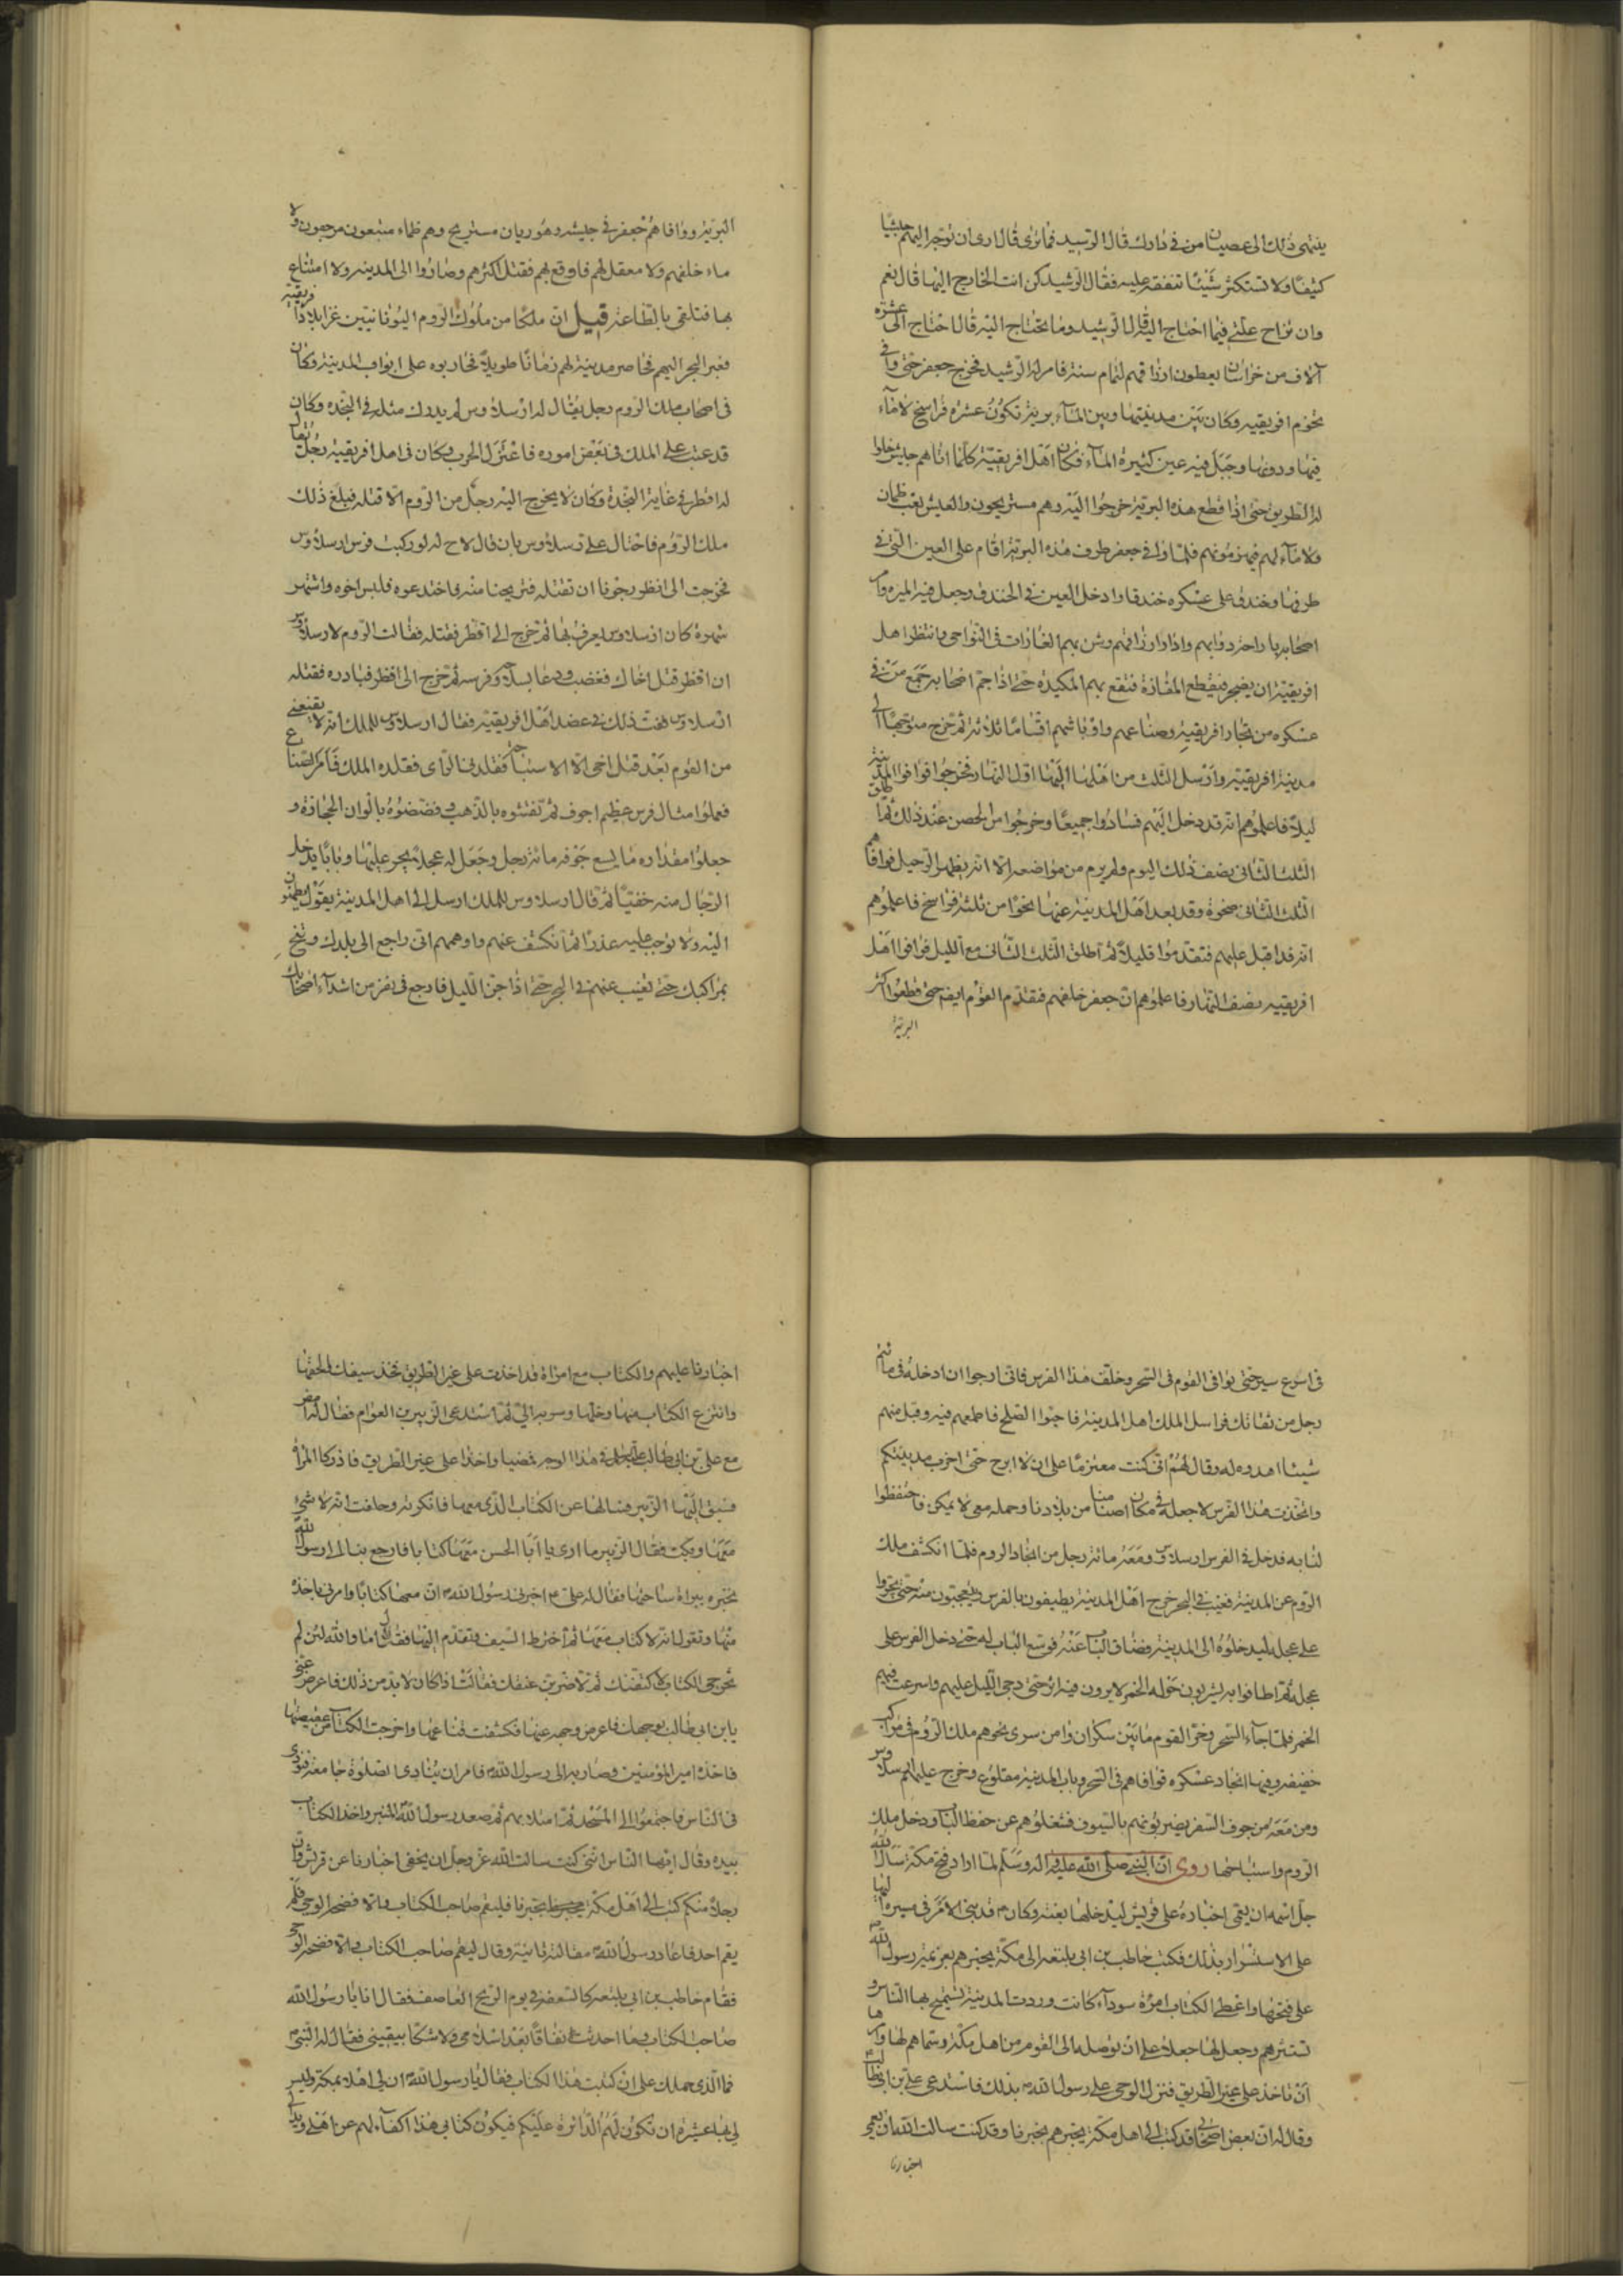 ينتهى ذلك الى عصيان من فى دارك قال الرشيد فما ترى قال ارى ان توجه اليهم جيشا
كثيفا ولا تستكثر شيئا تنفقه عليه فقال الرشيد كن انت الخارج اليها قال نعم
وان تزاح علتى فيما احتاج اليه قال الرشيد وما تحتاج اليه قال احتاج الى عشرة
آلاف من خراسان يعطون ارزاقهم لتمام سنة فامر له الرشيد فخرج جعفر حتى وافى
تخوم افريقيه وكان بين مدينتها وبين الماء برية تكون عشرة فراسخ لا ماء
فيها ودونها وجبل فيه عين كثيرة الماء فكان اهل افريقية كلما اتاهم جيش خلوا
له الطريق حتى اذا قطع هذه البرية خرجوا اليه وهم مستريحون والجيش تعب ظمان
ولا ماء لهم فيهزمونهم فلما وافى جعفر طرف هذه البرية اقام على العين التى فى
طرفها وخندق على عسكره خندقا وادخل العين فى الخندق وجعل فيه الميرة وامر
اصحابه باراحة دوابهم وادار ارزاقهم وشن بهم الغارات فى النواحى وانتظر اهل
افريقية ان يضجر فيقطع المفازة فتقع بهم المكيدة حتى اذا جم اصحابه جمع من فى
عسكره من تجار افريقية وصناعهم واوباشهم اقساما ثلاثة ثم خرج متوجها الى
مدينة افريقية وارسل الثلث من اهلها اليها اول النهار فخرجوا فوافوا المدينة
ليلا فاعلموهم انه قد دخل اليهم فساروا جميعا وخرجوا من الحصن عند ذلك ثم اطلق
الثلث الثانى نصف ذلك اليوم ولم يرم من مواضعه الا انه يظهر الرحيل فوافاهم
الثلث الثانى ضحوة وقد بعد اهل المدينة عنها نحوا من ثلثة فراسخ فاعلموهم
انه قد اقبل عليهم فتقدموا قليلا ثم اطلق الثلث الثالث مع الليل فوافوا اهل
افريقيه نصف النهار فاعلموهم ان جعفر خلفهم فتقدم القوم ايضا حتى قطعوا اكثر
البرية
البرية ووافاهم جعفر فى جيشه وهو ريان مستريح وهم ظماء متبعون مرجعون ولا
ماء خلفهم ولا معقل لهم فاوقع بهم فقتل اكثرهم وصاروا الى المدينه ولا امتناع
بها فتلقى بالطاعة قيل ان ملكا من ملوك الروم اليونانيين غزا بلاد افريقية
فعبر البحر اليهم فحاصر مدينة لهم زمانا طويلا فحاربوه على ابواب المدينة وكان
فى اصحاب ملك الروم رجل يقال له ارسلاوس لم يدرك مثله فى النجدة وكان
قد عتب على الملك فى بعض اموره فاعتزل الحرب وكان فى اهل افريقية رجل يقال
له اقطر فى غاية النجدة وكان لا يخرج اليه رجل من الروم الا قتله فبلغ ذلك
ملك الروم فاحتال على ارسلاوس بان قال لاخ له لو ركبت فرس ارسلاوس
فخرجت الى اقطر رجونا ان تقتله فتريحنا منه فاختدعوه فلبس اخوه واشتهر
شهرة كان ارسلاوس يعرف بها ثم خرج الى اقطر فقتله فقالت الروم لارسلاوس
ان اقطر قتل اخاك فغضب ودعا بسلاحه وفرسه ثم خرج الى اقطر فبادره فقتله
ارسلاوس ففت ذلك فى عضد اهل افريقية فقال ارسلاوس للملك انه لا يقنعنى
من القوم بعد قتل اخى الا الاستباحة فقلدنى الراى فقلده الملك فامر الصناع
فعملوا مثال فرس عظيم اجوف ثم نقشوه بالذهب وفضضوه بالوان الحجارة و
جعلوا مقداره ما يسع جوفه مائة رجل وجعل له عجلا يجر عليها وبابا يدخل
الرجال منه خفيا ثم قال ارسلاوس للملك ارسل الى اهل المدينة بقول يطمئنون
اليه ولا توجب عليه عذرا ثم انكشف عنهم واوهمهم انى راجع الى بلدك وتنح
بمراكبك حتى تغيب عنهم فى البحر حتى اذا جن الليل فارجع فى نفر من اشداء اصحابك
فى اسرع سير حتى توافى القوم فى السحر وخلف هذا الفرس فانى ارجوا ان ادخله فى مائة
رجل من ثقاتك فراسل الملك اهل المدينة فاحبوا الصلح فاطمعهم فيه وقبل منهم
شيئا اهدوه له وقال لهم انى كنت معتزما على ان لا ابرح حتى اخرب مدينتكم
واتخذت هذا الفرس لاجعله فى مكان اصنامنا من بلادنا وحمله معى لا يمكن فاحتفظوا
لنا به فدخل فى الفرس ارسلاوس ومعه مائة رجل من انجاد الروم فلما انكشف ملك
الروم عن المدينة فغيب فى البحر خرج اهل المدينة يطيفون بالفرس ويتعجبون منه حتى يجروا
على عجل ليدخلوه الى المدينة وضاق الباب عنه فوسع الباب له حتى دخل الفرس على
عجلة ثم اطافوا به يشربون حوله الخمر لا يرون فيه اثر حتى دجى الليل عليهم واسرعت فيهم
الخمر فلما جاء السحر وخر القوم ما بين سكران وامن سرى نحوهم ملك الروم فى مراكب
خفيفه وفيها انجاد عسكره فوافاهم فى السحر وباب المدينة مقلوع وخرج عليهم ارسلاوس
ومن معه من جوف الفرس يضربونهم بالسيوف فشغلوهم عن حفظ الباب ودخل ملك
الروم واستباحها روى ان النبى صلى الله عليه واله وسلم لما اراد فتح مكة سال الله
جل اسمه ان يعمى اخباره على قريش ليدخلها بغتة وكان قد بنى الامر فى مسيره اليها
على الاستسرار بذلك فكتب حاطب بن ابى بلتعه الى مكة يخبرهم بعزيمة رسول الله
على فتحها واعطى الكتاب امرأة سوداء كانت وردت المدينة تستميح بها الناس و
تستبرهم وجعل لها جعلا على ان توصله الى القوم من اهل مكة وسماهم لها وامرها
ان تاخذ على غير الطريق فنزل الوحى على رسول الله بذلك فاستدعى على بن ابى طالب
وقال له ان بعض اصحابى قد كتب الى اهل مكة يخبرهم بخبرنا وقد كنت سالت الله ان يعمى
اخبارنا
اخبارنا عليهم والكتاب مع امراة قد اخذت على غير الطريق فخذ سيفك والحقها
وانتزع الكتاب منها وخلها وسر به الى ثم استدعى الزبير بن العوام فقال له امض
مع على بن ابى طالب فى هذا الوجه فمضيا واخذا على غير الطريق فادركا المراة
فسبق اليها الزبير فسالها عن الكتاب الذى معها فانكرته وحلفت انه لا شئ
معها وبكت فقال الزبير ما ارى يا ابا الحسن معها كتابا فارجع بنا الى رسول الله
نخبره ببراة ساحتها فقال له على اخبرنى رسول الله ان معها كتابا وامرنى باخذه
منها وتقول انه لا كتاب معها ثم اخترط السيف وتقدم اليها فقال اما والله لئن لم
تخرجى الكتاب لاكشفنك ثم لاضربن عنقك فقالت اذا كان لا بد من ذلك فاعرض عنى
يا بن ابى طالب بوجهك فاعرض وجهه عنها فكشفت قناعها واخرجت الكتاب من عقيصتها
فاخذه امير المؤمنين وصار به الى رسول الله فامر ان ينادى الصلوة جامعة فنودى
فى الناس فاجتمعوا الى المسجد حتى امتلا بهم ثم صعد رسول الله المنبر واخذ الكتاب
بيده وقال ايها الناس انى كنت سالت الله عز وجل ان يخفى اخبارنا عن قريش وان
رجلا منكم كتب الى اهل مكة يخبرهم بخبرنا فليقم صاحب الكتاب والا فضحه الوحى فلم
يقم احد فاعاد رسول الله مقالته ثانية وقال ليقم صاحب الكتاب والا فضحه الوحى
فقام حاطب بن ابى بلتعه كالسعفة فى يوم الريح العاصف فقال انا يا رسول الله
صاحب الكتاب وما احدثت نفاقا بعد اسلامى ولا شكا بيقينى فقال له النبى
فما الذى حملك على ان كتبت هذا الكتاب فقال يا رسول الله ان لى اهلا بمكة وليس
لى بها عشيرة ان تكون لهم الدائرة عليكم فيكون كتابى هذا اكفاء لهم عن اهلى ويدا لى